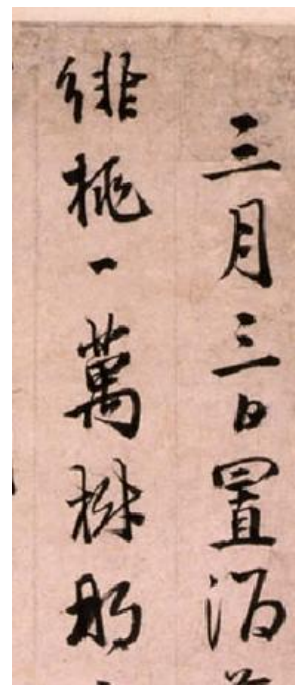 三月三日置酒
緋桃一萬株